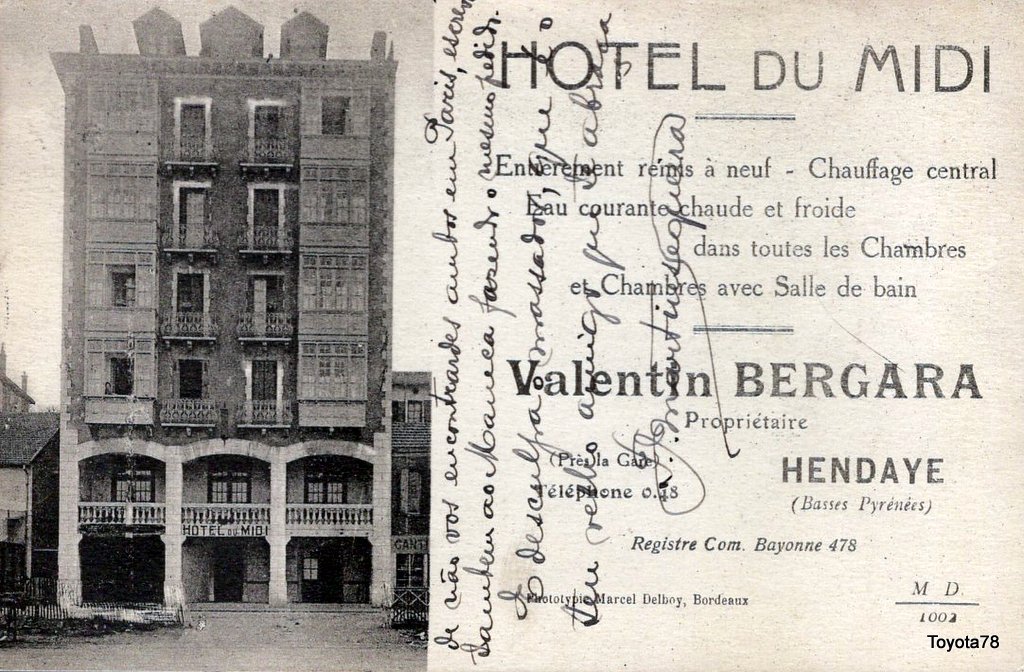 HOTEL DU MIDI
Entièrement remis à neuf - Chauffage central
Eau courante chaude et froide
dans toutes les Chambres
et Chambres avec Salle de bain
Valentin BERGARA
Propriétaire
(Près la Gare)
HENDAYE
Téléphone 0.48
(Basses Pyrénées)
Registre Com. Bayonne 478
Phototypie Marcel Delboy, Bordeaux
M D.
1002
HOTEL DU MIDI
de não vos encontrardes ambos em Paris, escrevi
tambem ao Maneca fazendo o mesmo pedido.
E desculpa a massada, que é o
teu velho amigo que te abraça
Toyota78